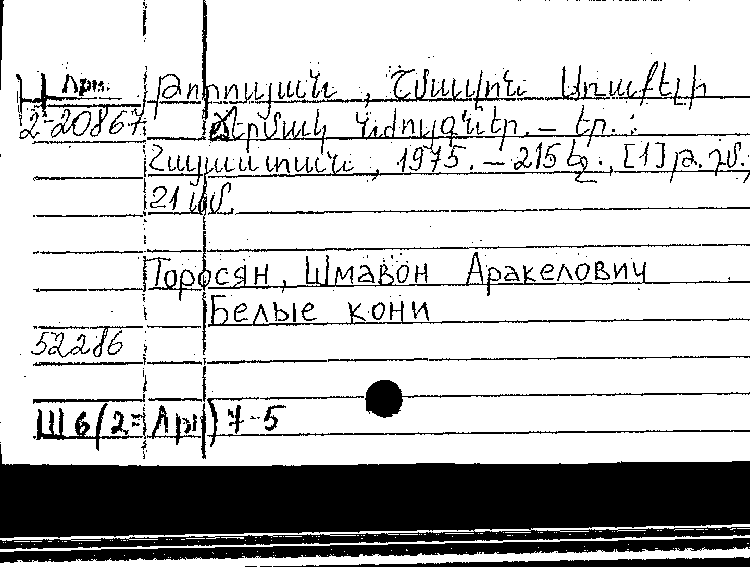 Арм.
2-20867
Թորոսյան, Շմավոն Առաքելի
Ճերմակ նժույգներ. – Եր.:
Հայաստան, 1975. – 215 էջ., [1] թ. դմ.,
21 սմ.
Торосян, Шмавон Аракелович
Белые кони
52286
Ш6(2=Арм)7-5